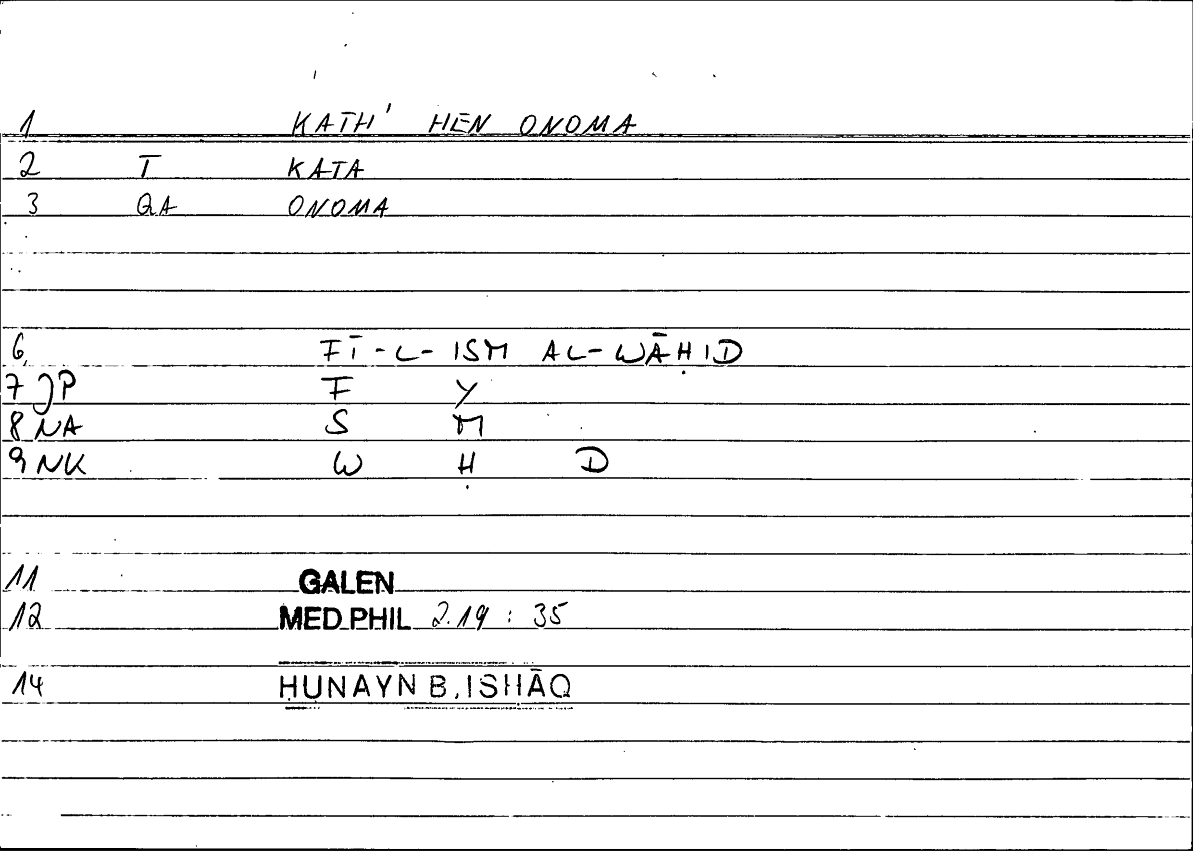 1 KATH' HEN ONOMA
2 T KATA
3 QA ONOMA
6 FĪ-L-ISM AL-WĀḤID
7 JP F Y
8 NA S M
9 NK W Ḥ D
11 GALEN
12 MED PHIL 2.19 : 35
14 ḤUNAYN B. ISḤĀQ